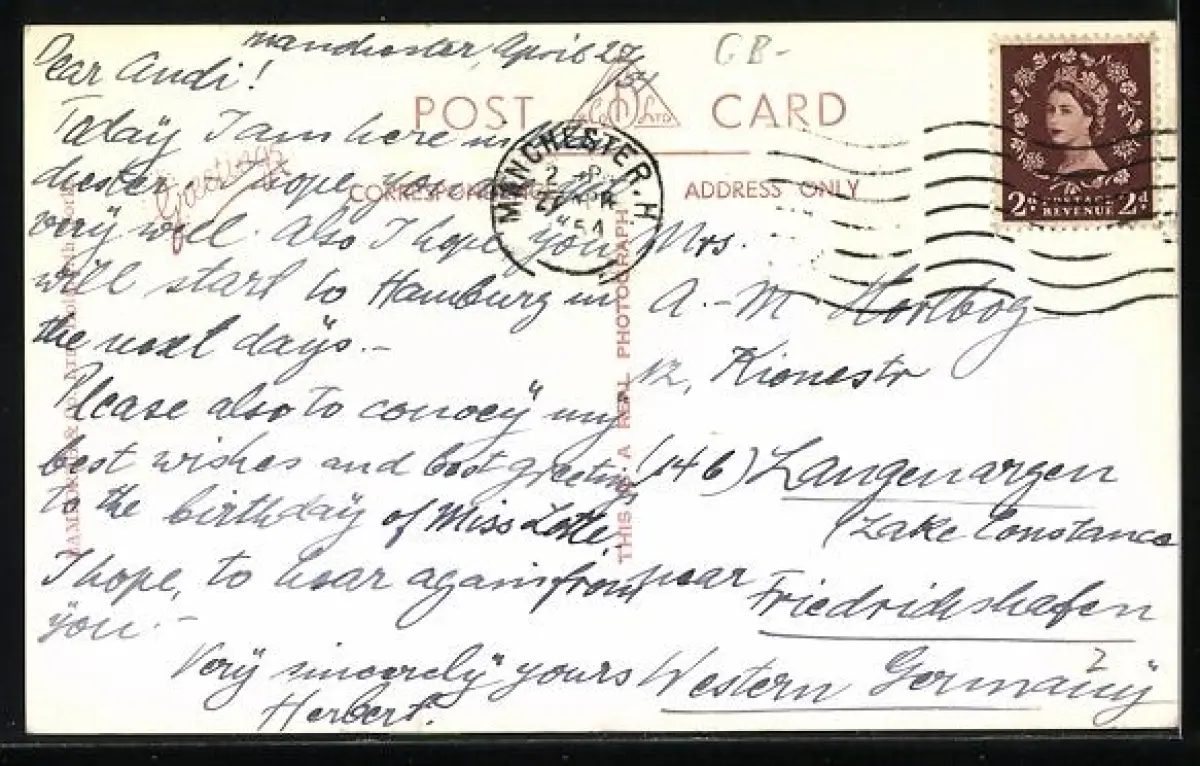 Manchester, April 27/54
GB-
Dear Andi!
POST CARD
Co D Ltd
Today I am here in Man
chester. I hope, you are
very well. Also I hope you
will start to Hamburg in
the next days.-
Please also to convey my
best wishes and best greetings
to the birthday of Miss Lotte.
I hope, to hear again from
you.-
Very sincerely yours
Herbert.
Greetings
CORRESPONDENCE
ADDRESS ONLY
MANCHESTER.H
THIS IS A REAL PHOTOGRAPH
2d POSTAGE REVENUE 2d
Mrs.
A.-M.
12, Kionestr
(14b) Langenargen
(Lake Constance
near Friedrichshafen
Western Germany